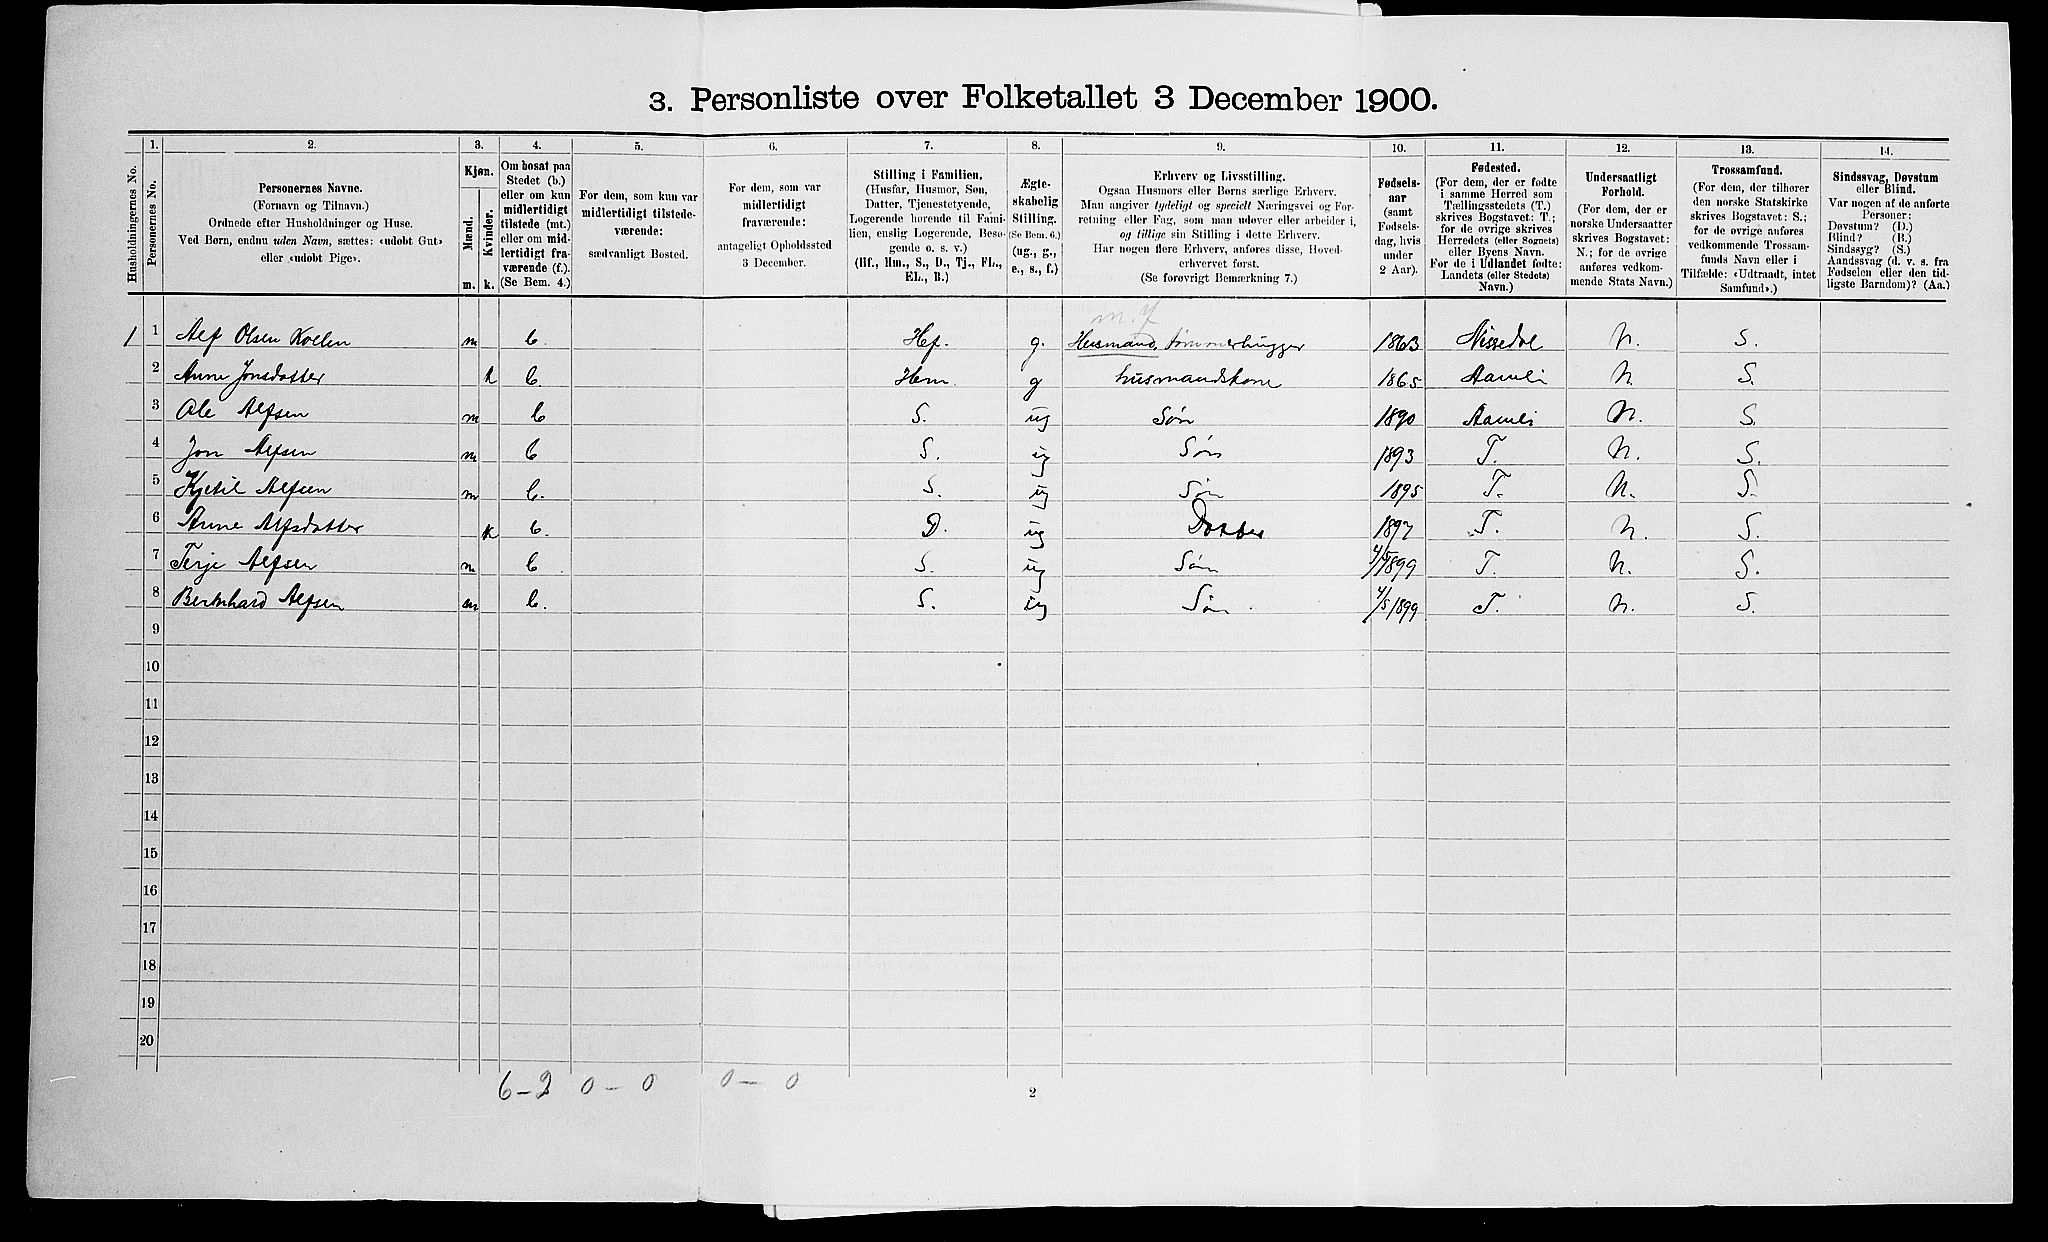 3. Personliste over Folketallet 3 December 1900.
Husholdningernes No.
1.
Personernes No.
2.
Personernes Navne.
(Fornavn og Tilnavn.)
Ordnede efter Husholdninger og Huse.
Ved Børn, endnu uden Navn, sættes: «udøbt Gut»
eller «udøbt Pige».
3.
Kjøn.
Mænd.
Kvinder.
m. k.
4.
Om bosat paa
Stedet (b.)
eller om kun
midlertidigt
tilstede (mt.)
eller om mid-
lertidigt fra-
værende (f.).
(Se Bem. 4.)
5.
For dem, som kun var
midlertidigt tilstede-
værende:
sædvanligt Bosted.
6.
For dem, som var
midlertidigt
fraværende:
antageligt Opholdssted
3 December.
7.
Stilling i Familien.
(Husfar, Husmor, Søn,
Datter, Tjenestetyende,
Logerende hørende til Fami-
lien, enslig Logerende, Besø-
gende o. s. v.)
(Hf., Hm., S., D., Tj., FL.,
EL., B.)
8.
Ægte-
skabelig
Stilling.
(Se Bem. 6.)
(ug., g.,
e., s., f.)
9.
Erhverv og Livsstilling.
Ogsaa Husmors eller Børns særlige Erhverv.
Man angiver tydeligt og specielt Næringsvei og For-
retning eller Fag, som man udøver eller arbeider i,
og tillige sin Stilling i dette Erhverv.
Har nogen flere Erhverv, anføres disse, Hoved-
erhvervet først.
(Se forøvrigt Bemærkning 7.)
10.
Fødsels-
aar
(samt
Fødsels-
dag, hvis
under
2 Aar).
11.
Fødested.
(For dem, der er fødte
i samme Herred som
Tællingsstedets (T.)
skrives Bogstavet: T.;
for de øvrige skrives
Herredets (eller Sognets)
eller Byens Navn.
For de i Udlandet fødte:
Landets (eller Stedets)
Navn.)
12.
Undersaatligt
Forhold.
(For dem, der er
norske Undersaatter
skrives Bogstavet:
N.; for de øvrige
anføres vedkom-
mende Stats Navn.)
13.
Trossamfund.
(For dem, der tilhører
den norske Statskirke
skrives Bogstavet: S.;
for de øvrige anføres
vedkommende Trossam-
funds Navn eller i
Tilfælde: «Udtraadt, intet
Samfund».)
14.
Sindssvag, Døvstum
eller Blind.
Var nogen af de anførte
Personer:
Døvstum? (D.)
Blind? (B.)
Sindssyg? (S.)
Aandssvag (d. v. s. fra
Fødselen eller den tid-
ligste Barndom)? (Aa.)
1 1 Alf Olsen Kollen m b. Hf. g. Husmand, tømmerhugger 1863 Nissedal N. S.
2 Anne Jonsdatter k b. Hm. g husmandskone 1865 Aamli N. S.
3 Ole Alfsen m b S. ug Søn 1890 Aamli N. S.
4 Jon Alfsen m b S. ug Søn 1893 T. N. S.
5 Kjetil Alfsen m b. S. ug Søn 1895 T. N. S.
6 Anne Alfsdatter k b. D. ug Datter 1897 T. N. S.
7 Terje Alfsen m b. S. ug Søn 4/5 1899 T. N. S.
8 Bernhard Alfsen m b. S. ug Søn 4/5 1899 T. N. S.
9
10
11
12
13
14
15
16
17
18
19
20
6-2 0-0 0-0
2